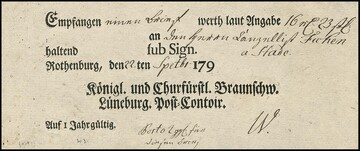 Empfangen einen Brief werth laut Angabe 16 rf 23
an den Herrn
haltend sub Sign. a Stade
Rothenburg, den 22 ten Septbr 179
Königl. und Churfürstl. Braunschw.
Lüneburg. Post-Contoir.
Auf 1 Jahrgültig.
W.